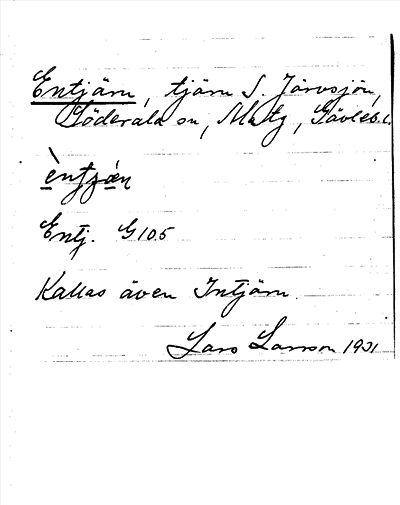 Entjärn, tjärn S. Järvsjön,
Söderala sn, Hlg, Gävleb. l.
èntjæ̀n
Entj. G 105
Kallas även Intjärn.
Lars Larsson 1931